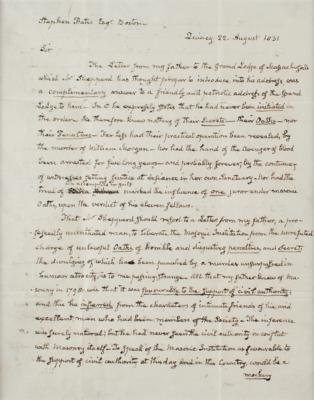 Stephen Bates Esqr Boston
Quincy 22. August 1831
Sir
The Letter from my father to the Grand Lodge of Massachusetts
which Mr Sheppard has thought proper to introduce into his address was
a complementary answer to a friendly and patriotic address of the Grand
Lodge to him. In it he expressly states that he had never been initiated in
the order. He therefore knew nothing of their Secrets — their Oaths — nor
their Penalties. Far less had their practical operation been revealed, by
the murder of William Morgan. Nor had the hand of the avenger of blood
been arrested for five long years — and probably forever, by the contumacy
of witnesses setting justice at defiance in her own Sanctuary. Nor had the
trial of an accomplice in guilt marked the influence of one juror under masonic
Oaths, upon the verdict of his eleven fellows.
That Mr Sheppard should resort to a Letter from my father, a pro-
fessedly uninitiated man, to liberate the Masonic Institution from the
charge of unlawful Oaths of horrible and disgusting penalties, and Secrets
the divulging of which has been punished by a murder unsurpassed in
human atrocity, is to me passing strange. All that my father knew of Ma-
sonry in 1798. was that it was favourable to the support of civil authority;
and this he inferred from the characters of intimate friends of his and
excellent men who had been members of the Society. The inference
was surely natural; but he had never seen the civil authority in conflict
with Masonry itself. To speak of the Masonic Institution as favourable to
the support of civil authority at this day and in this Country, would be a
mockery